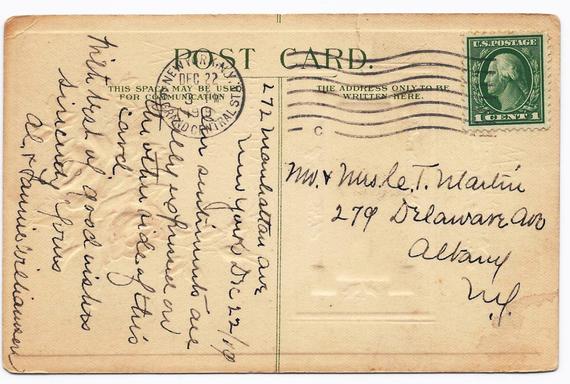 POST CARD.
THIS SPACE MAY BE USED
FOR COMMUNICATION
THE ADDRESS ONLY TO BE
WRITTEN HERE.
NEW YORK, N.Y.
DEC 22
GRAND CENTRAL STA.
C
U.S. POSTAGE
1 CENT 1
272 Manhattan ave
New York Dec 22/19
Our sentiments are
fully expressed on
the other side of this
card.
With best of good wishes
Sincerely yours
Al. & Fannie
Mr. & Mrs. C. T. Martin
279 Delaware Ave
Albany
N.Y.